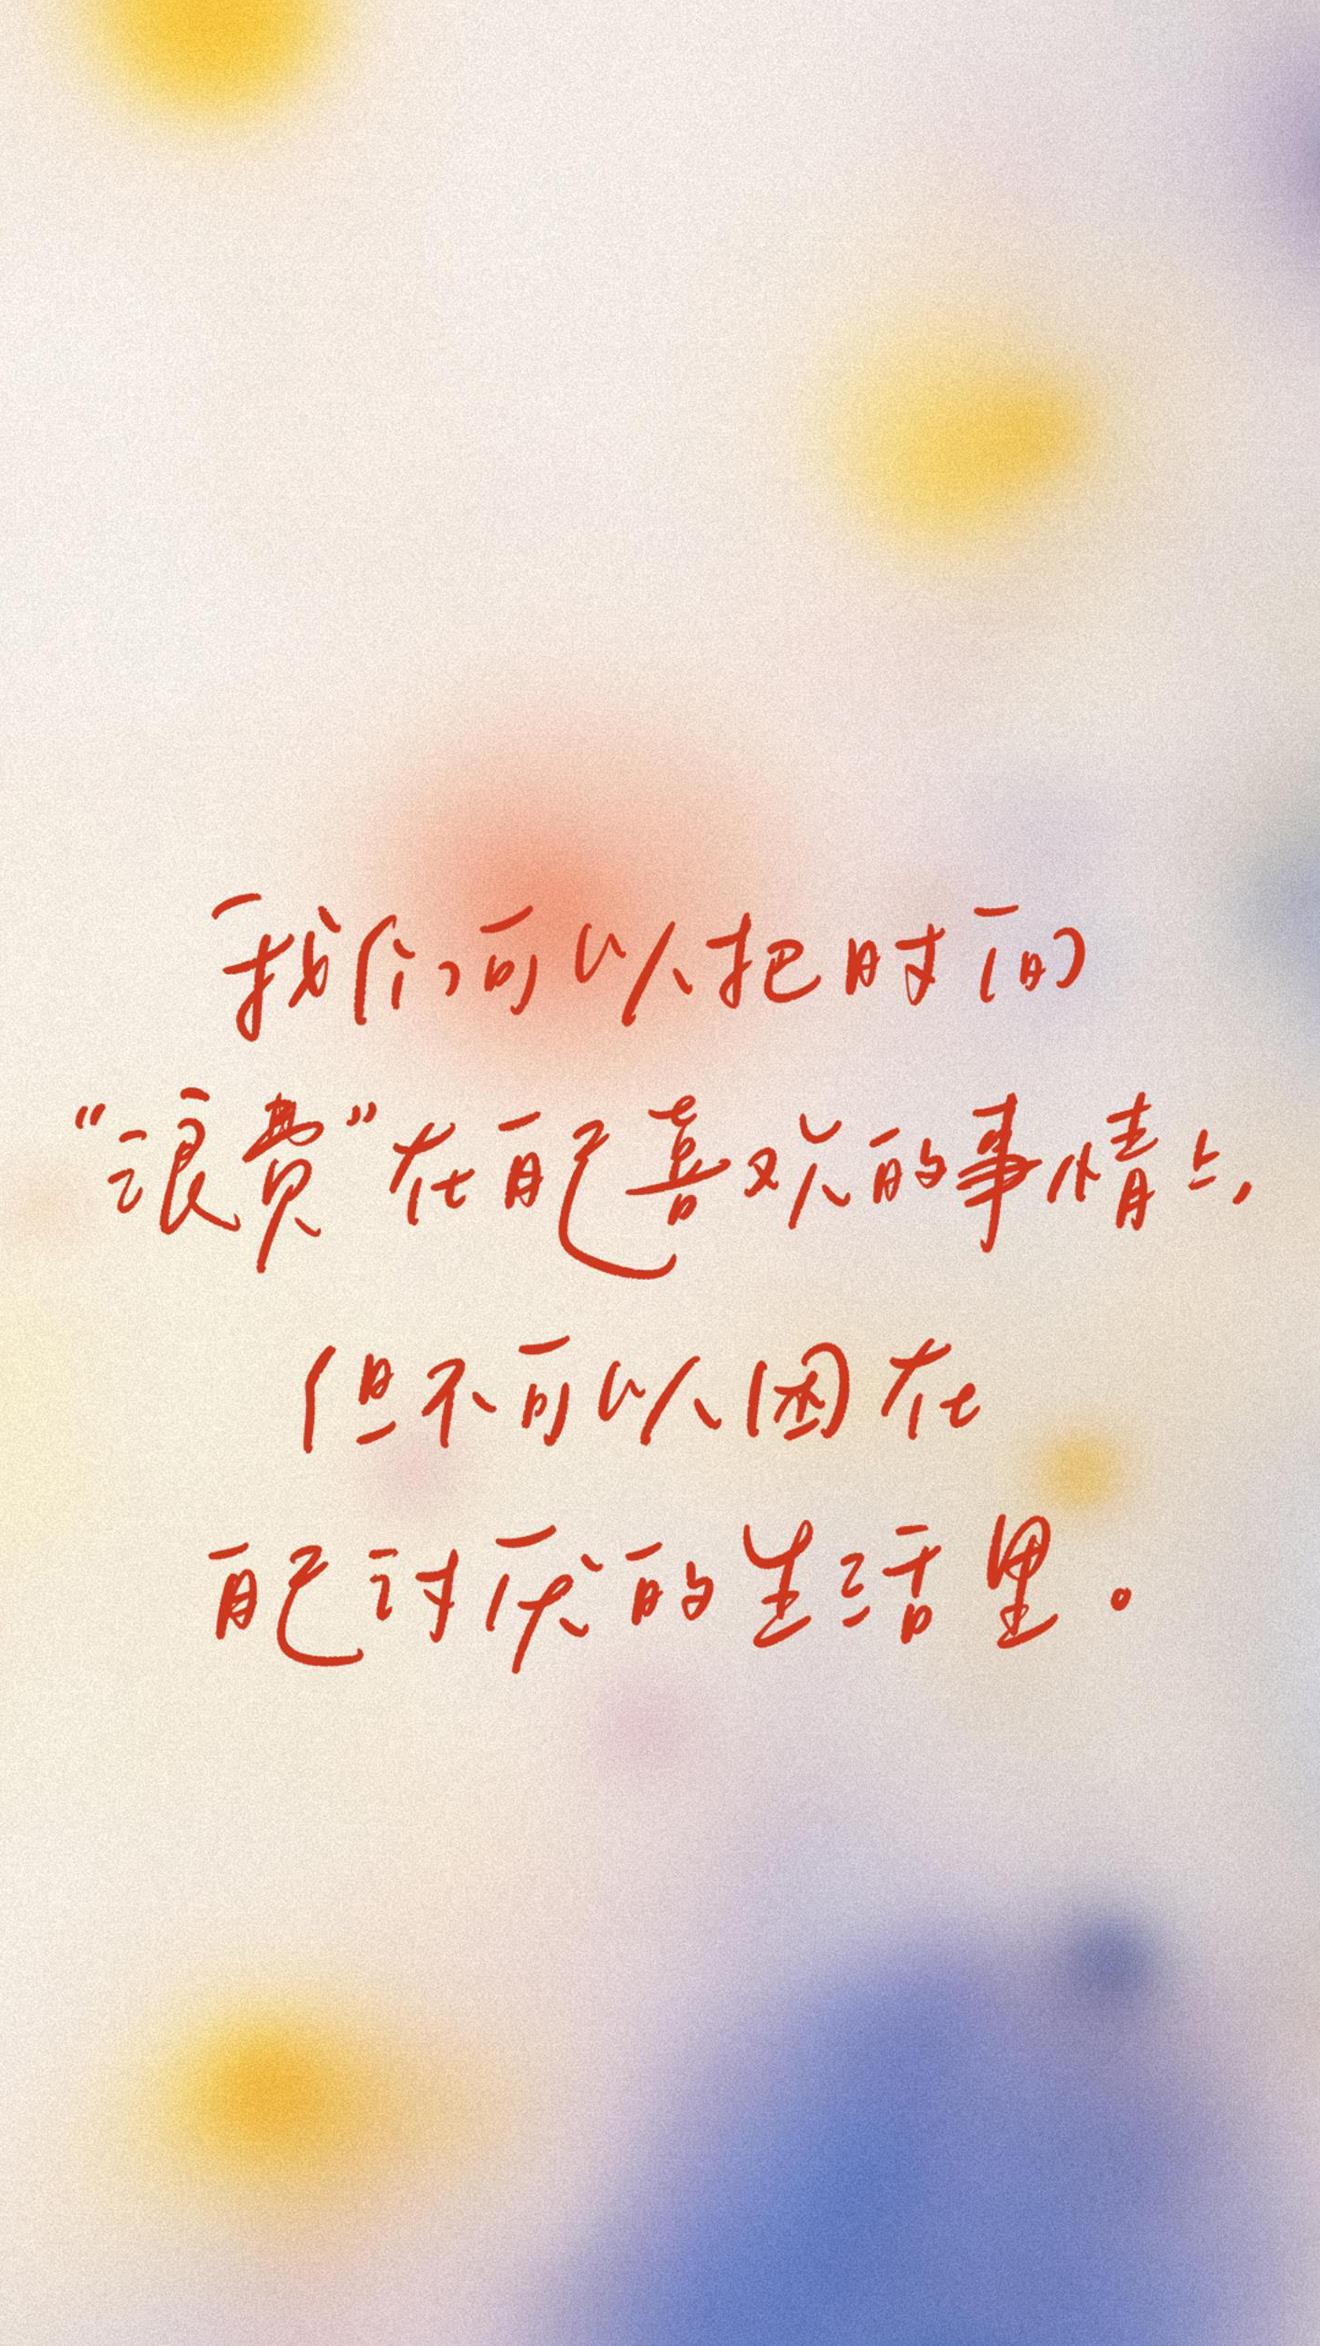 我们可以把时间
“浪费”在自己喜欢的事情上，
但不可以困在
自己讨厌的生活里。